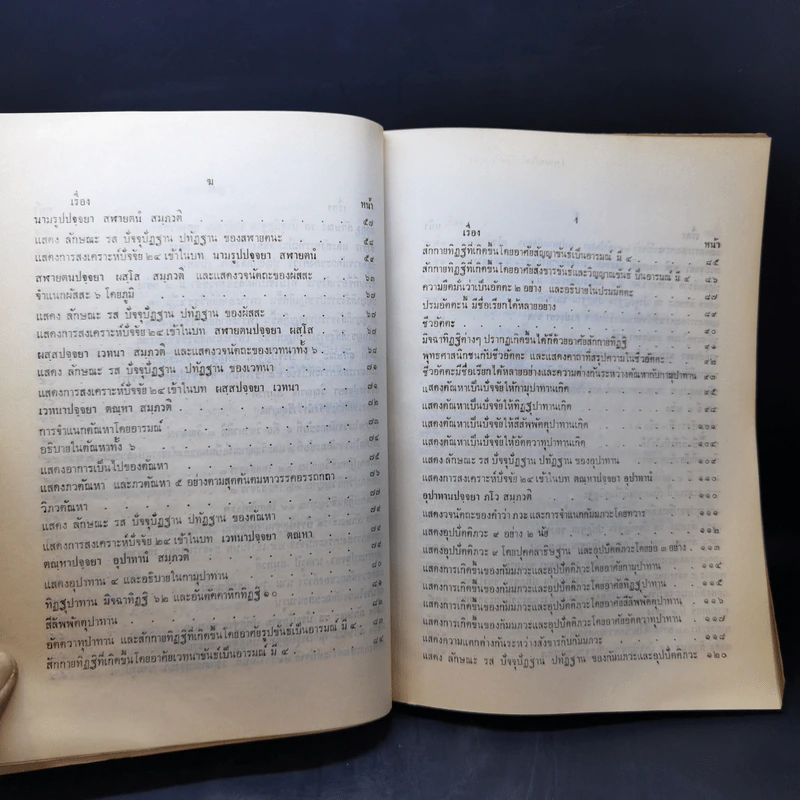 ฆ
เรื่อง หน้า
นามรูปปจฺจยา สฬายตนํ สมฺภวติ . . . . . ๕๘
แสดง ลักษณะ รส ปัจจุปัฏฐาน ปทัฏฐาน ของสฬายตนะ . . .
แสดงการสงเคราะห์ปัจจัย ๒๔ เข้าในบท นามรูปปจฺจยา สฬายตนํ .
สฬายตนปจฺจยา ผสฺโส สมฺภวติ และแสดงวจนัตถะของผัสสะ . . ๖๓
จำแนกผัสสะ ๖ โดยภูมิ
แสดง ลักษณะ รส ปัจจุปัฏฐาน ปทัฏฐาน ของผัสสะ . . .
แสดงการสงเคราะห์ปัจจัย ๒๔ เข้าในบท สฬายตนปจฺจยา ผสฺโส
ผสฺสปจฺจยา เวทนา สมฺภวติ และแสดงวจนัตถะของเวทนาทั้ง ๖ . ๖๘
แสดง ลักษณะ รส ปัจจุปัฏฐาน ปทัฏฐาน ของเวทนา . . .
แสดงการสงเคราะห์ปัจจัย ๒๔ เข้าในบท ผสฺสปจฺจยา เวทนา . ๗๑
เวทนาปจฺจยา ตณฺหา สมฺภวติ . . . . .
การจำแนกตัณหาโดยอารมณ์ . . . . .
อธิบายในตัณหาทั้ง ๖ . . . . . ๗๔
แสดงอาการเป็นไปของตัณหา . . . . .
แสดงภวตัณหา และภวตัณหา ๕ อย่างตามสุตตันตมหาวรรคอรรถกถา . ๗๖
วิภวตัณหา . . . . .
แสดง ลักษณะ รส ปัจจุปัฏฐาน ปทัฏฐาน ของตัณหา . . .
แสดงการสงเคราะห์ปัจจัย ๒๔ เข้าในบท เวทนาปจฺจยา ตณฺหา .
ตณฺหาปจฺจยา อุปาทานํ สมฺภวติ . . . . .
แสดงอุปาทาน ๔ และอธิบายในกามุปาทาน . . . . ๘๐
ทิฏฐุปาทาน มิจฉาทิฏฐิ ๖๒ และอันตัคคาหิกทิฏฐิ ๑๐ . . .
สีลัพพัตตุปาทาน . . . . . ๘๓
อัตตวาทุปาทาน และสักกายทิฏฐิที่เกิดขึ้นโดยอาศัยรูปขันธ์เป็นอารมณ์ มี ๔ .
สักกายทิฏฐิที่เกิดขึ้นโดยอาศัยเวทนาขันธ์เป็นอารมณ์ มี ๔ . . ๘๔
เรื่อง หน้า
สักกายทิฏฐิที่เกิดขึ้นโดยอาศัยสัญญาขันธ์เป็นอารมณ์ มี ๔ . . ๘๕
สักกายทิฏฐิที่เกิดขึ้นโดยอาศัยสังขารขันธ์และวิญญาณขันธ์ เป็นอารมณ์ มี ๔ . ๘๖
ความยึดมั่นว่าเป็นอัตตะ ๒ อย่าง และอธิบายในปรมอัตตะ . . ๘๗
ปรมอัตตะนี้ มีชื่อเรียกได้หลายอย่าง . . . .
ชีวอัตตะ . . . . . ๙๐
มิจฉาทิฏฐิต่างๆ ปรากฏเกิดขึ้นได้ก็ด้วยอาศัยสักกายทิฏฐิ . . .
พุทธศาสนิกชนกับชีวอัตตะ และแสดงคาถาที่สรุปความในชีวอัตตะ .
ชีวอัตตะมีชื่อเรียกได้หลายอย่างและความต่างกันระหว่างตัณหากับกามุปาทาน .
แสดงตัณหาเป็นปัจจัยให้กามุปาทานเกิด . . . .
แสดงตัณหาเป็นปัจจัยให้ทิฏฐุปาทานเกิด . . . .
แสดงตัณหาเป็นปัจจัยให้สีลัพพัตตุปาทานเกิด . . . .
แสดงตัณหาเป็นปัจจัยให้อัตตวาทุปาทานเกิด . . . .
แสดง ลักษณะ รส ปัจจุปัฏฐาน ปทัฏฐาน ของอุปาทาน . . . ๑๐๔
แสดงการสงเคราะห์ปัจจัย ๒๔ เข้าในบท ตณฺหาปจฺจยา อุปาทานํ .
อุปาทานปจฺจยา ภโว สมฺภวติ . . . . ๑๑๐
แสดงวจนัตถะของคำว่า ภวะ และการจำแนกกัมมภวะโดยทวาร . .
แสดงอุปปัตติภวะ ๙ อย่าง ๒ นัย . . . . ๑๑๒
แสดงอุปปัตติภวะ ๙ โดยปุคคลาธิษฐาน และอุปปัตติภวะโดยย่อ ๓ อย่าง . ๑๑๓
แสดงการเกิดขึ้นของกัมมภวะและอุปปัตติภวะโดยอาศัยกามุปาทาน .
แสดงการเกิดขึ้นของกัมมภวะและอุปปัตติภวะโดยอาศัยทิฏฐุปาทาน . ๑๑๕
แสดงการเกิดขึ้นของกัมมภวะและอุปปัตติภวะโดยอาศัยสีลัพพัตตุปาทาน . ๑๑๖
แสดงการเกิดขึ้นของกัมมภวะและอุปปัตติภวะโดยอาศัยอัตตวาทุปาทาน . ๑๑๗
แสดงความแตกต่างกันระหว่างสังขารกับกัมมภวะ . . . ๑๑๘
แสดง ลักษณะ รส ปัจจุปัฏฐาน ปทัฏฐาน ของกัมภวะและอุปปัตติภวะ ๑๒๐